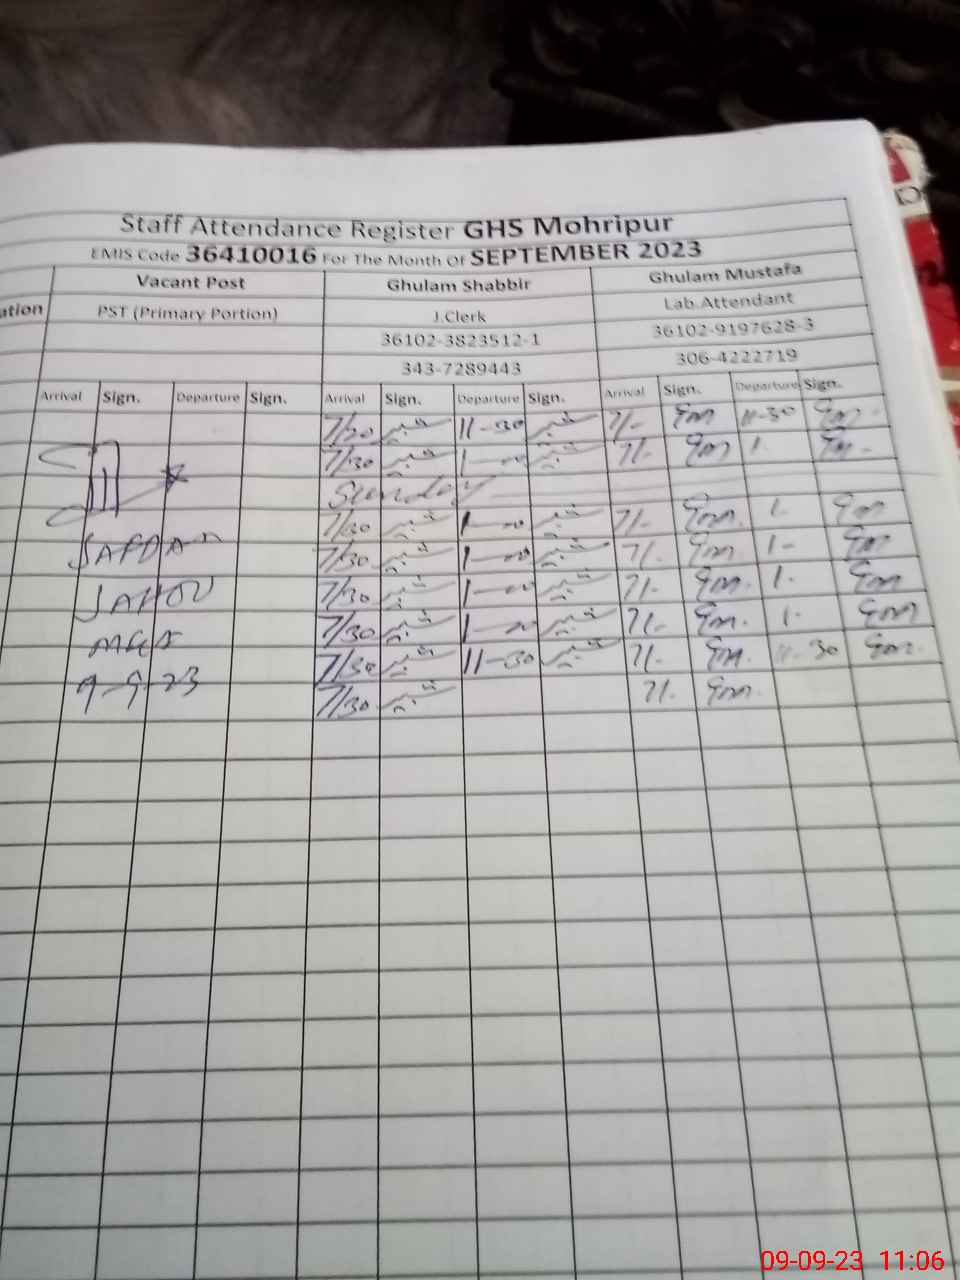 Staff Attendance Register GHS Mohripur
EMIS Code 36410016 For The Month Of SEPTEMBER 2023
Vacant Post Ghulam Shabbir Ghulam Mustafa
ation PST (Primary Portion) J.Clerk Lab.Attendant
36102-3823512-1 36102-9197628-3
343-7289443 306-4222719
Arrival Sign. Departure Sign. Arrival Sign. Departure Sign. Arrival Sign. Departure Sign.
7/30 11-30 7/- Gm 11-30 Gm
7/30 1-00 7/- Gm 1- Gm
Sunday
7/30 1-00 7/- Gm 1- Gm
SAFDAR 7/30 1-00 7/- Gm 1- Gm
7/30 1-00 7/- Gm 1- Gm
7/30 1-00 7/- Gm 1- Gm
7/30 11-30 7/- Gm 11-30 Gm
9-9-23 7/30 7/- Gm
09-09-23 11:06